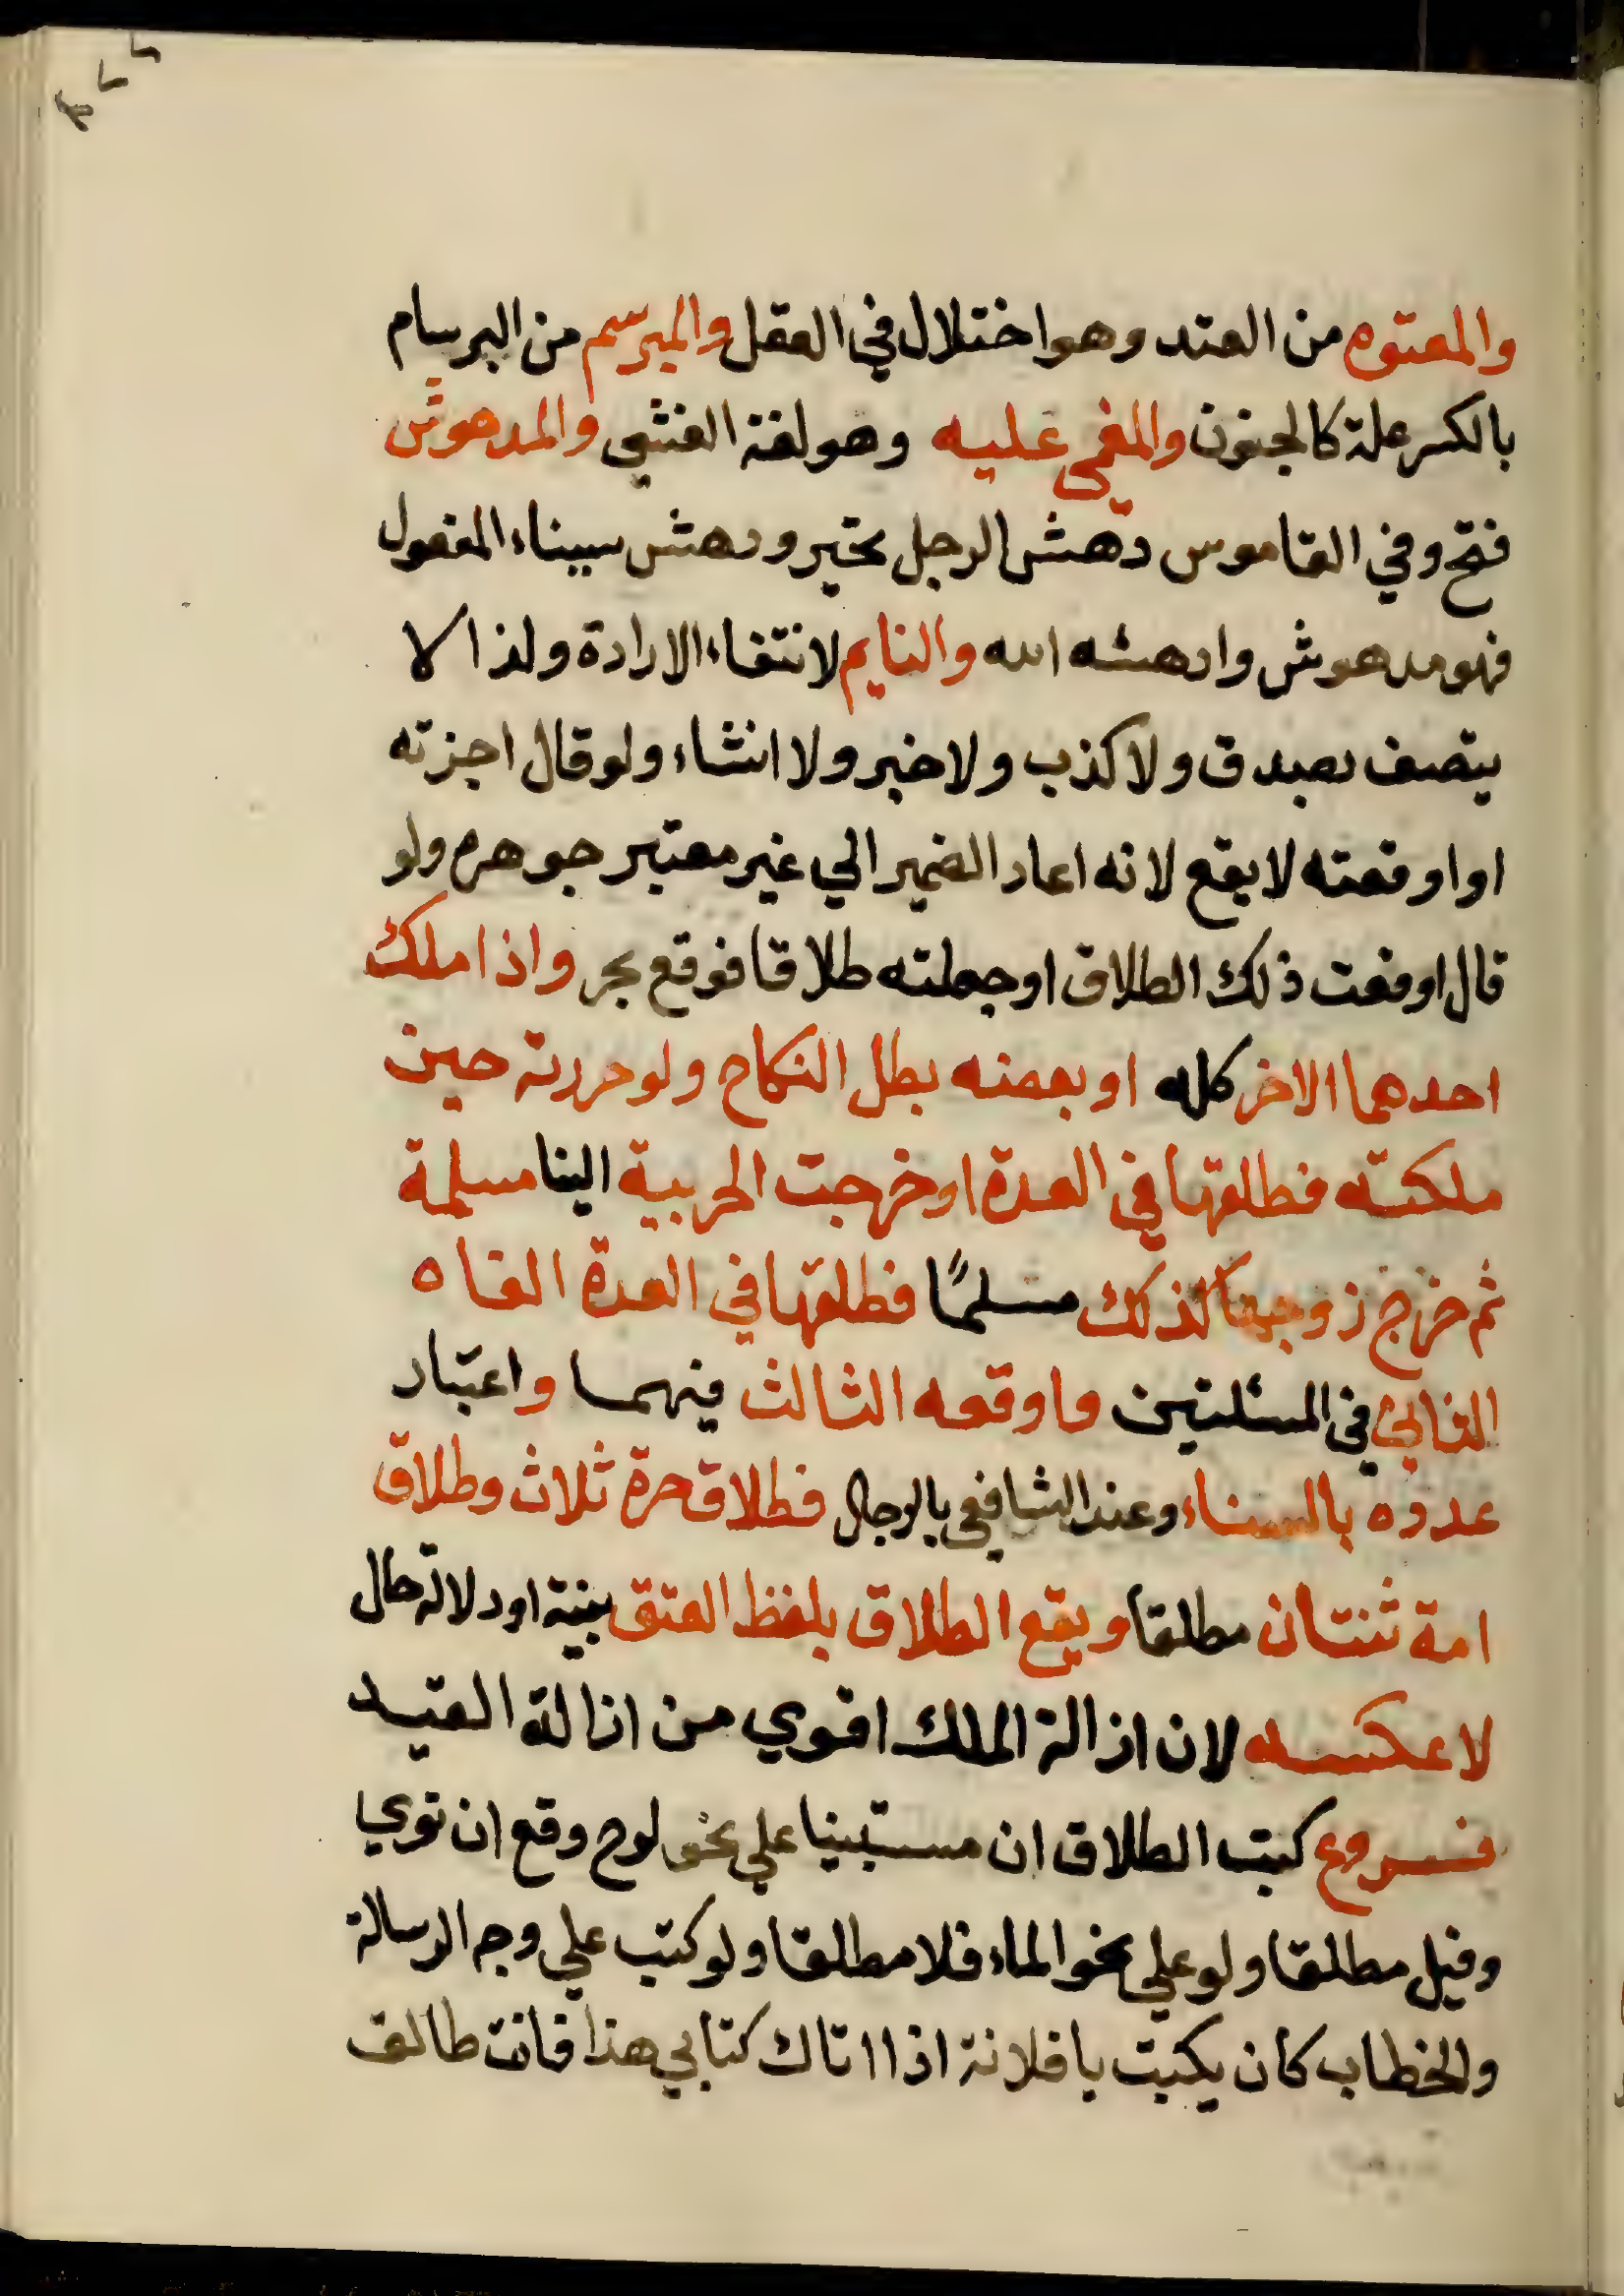 والمعتوه من العته وهو اختلال في العقل والمبرسم من البرسام
بالكسر علة كالجنون والمغمي عليه وهو لغة الغشي والمدهوش
فتح وفي القاموس دهش الرجل تحير ودهش ببناء المفعول
فهو مدهوش وادهشه الله والنايم لانتفاء الارادة ولذا لا
يتصف بصدق ولا كذب ولا خبر ولا انشاء ولو قال اجزته
او اوقعته لا يقع لانه اعاد الضمير الي غير معتبر جوهره ولو
قال اوقعت ذلك الطلاق او جعلته طلاقا فوقع بحر واذا ملك
احدهما الاخر كله او بعضه بطل النكاح ولو حررته حين
ملكته فطلقها في العدة او خرجت الحربية الينا مسلمة
ثم خرج زوجها كذلك مسلمًا فطلقها في العدة الغاه
الثاني في المسئلتين واوقعه الثالث فيهما واعتبار
عدده بالنساء وعند الشافعي بالرجال فطلاق حرة ثلاث وطلاق
امة ثنتان مطلقا ويقع الطلاق بلفظ العتق بنية او دلالة حال
لا عكسه لان ازالة الملك اقوي من ازالة القيد
فروع كتب الطلاق ان مستبينا علي نحو لوح وقع ان نوي
وقيل مطلقا ولو علي نحو الماء فلا مطلقا ولو كتب علي وجه الرسالة
والخطاب كان يكتب يا فلانة اذا اتاك كتابي هذا فانت طالق